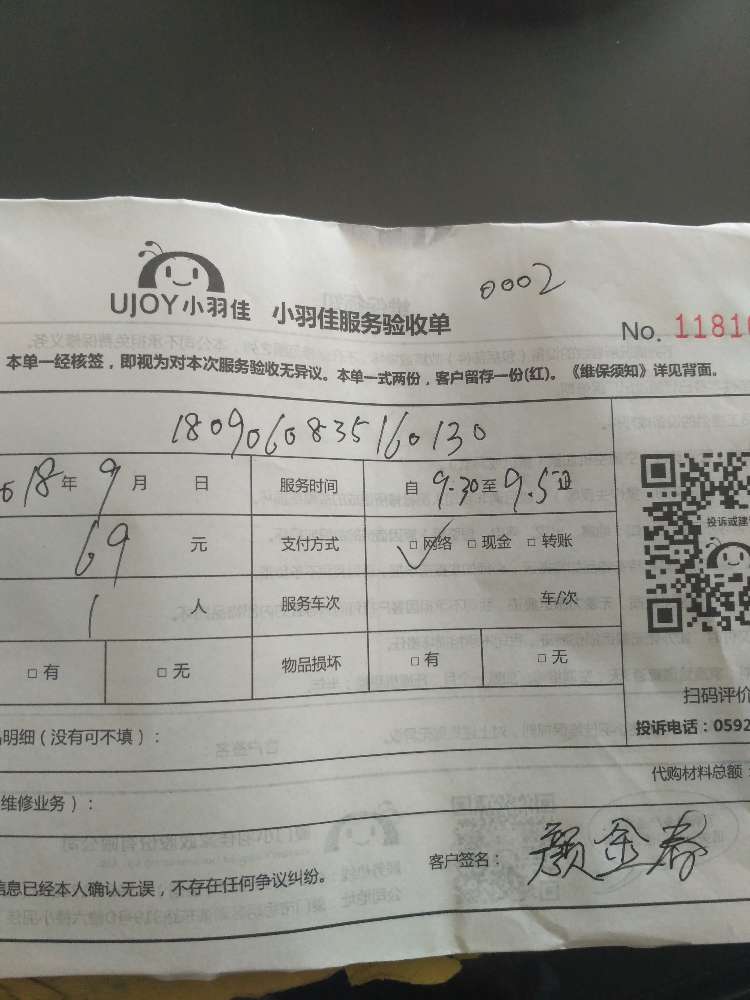 0002
UJOY小羽佳 小羽佳服务验收单
No. 11810
本单一经核签，即视为对本次服务验收无异议。本单一式两份，客户留存一份(红)。《维保须知》详见背面。
1809060835160130
18年9月 日 服务时间 自 9.30至9.5
69 元 支付方式 □网络 □现金 □转账
1 人 服务车次 车/次
□有 □无 物品损坏 □有 □无
投诉或建
扫码评价
投诉电话：0592
明细（没有可不填）：
代购材料总额：
维修业务）：
客户签名：颜金春
信息已经本人确认无误，不存在任何争议纠纷。